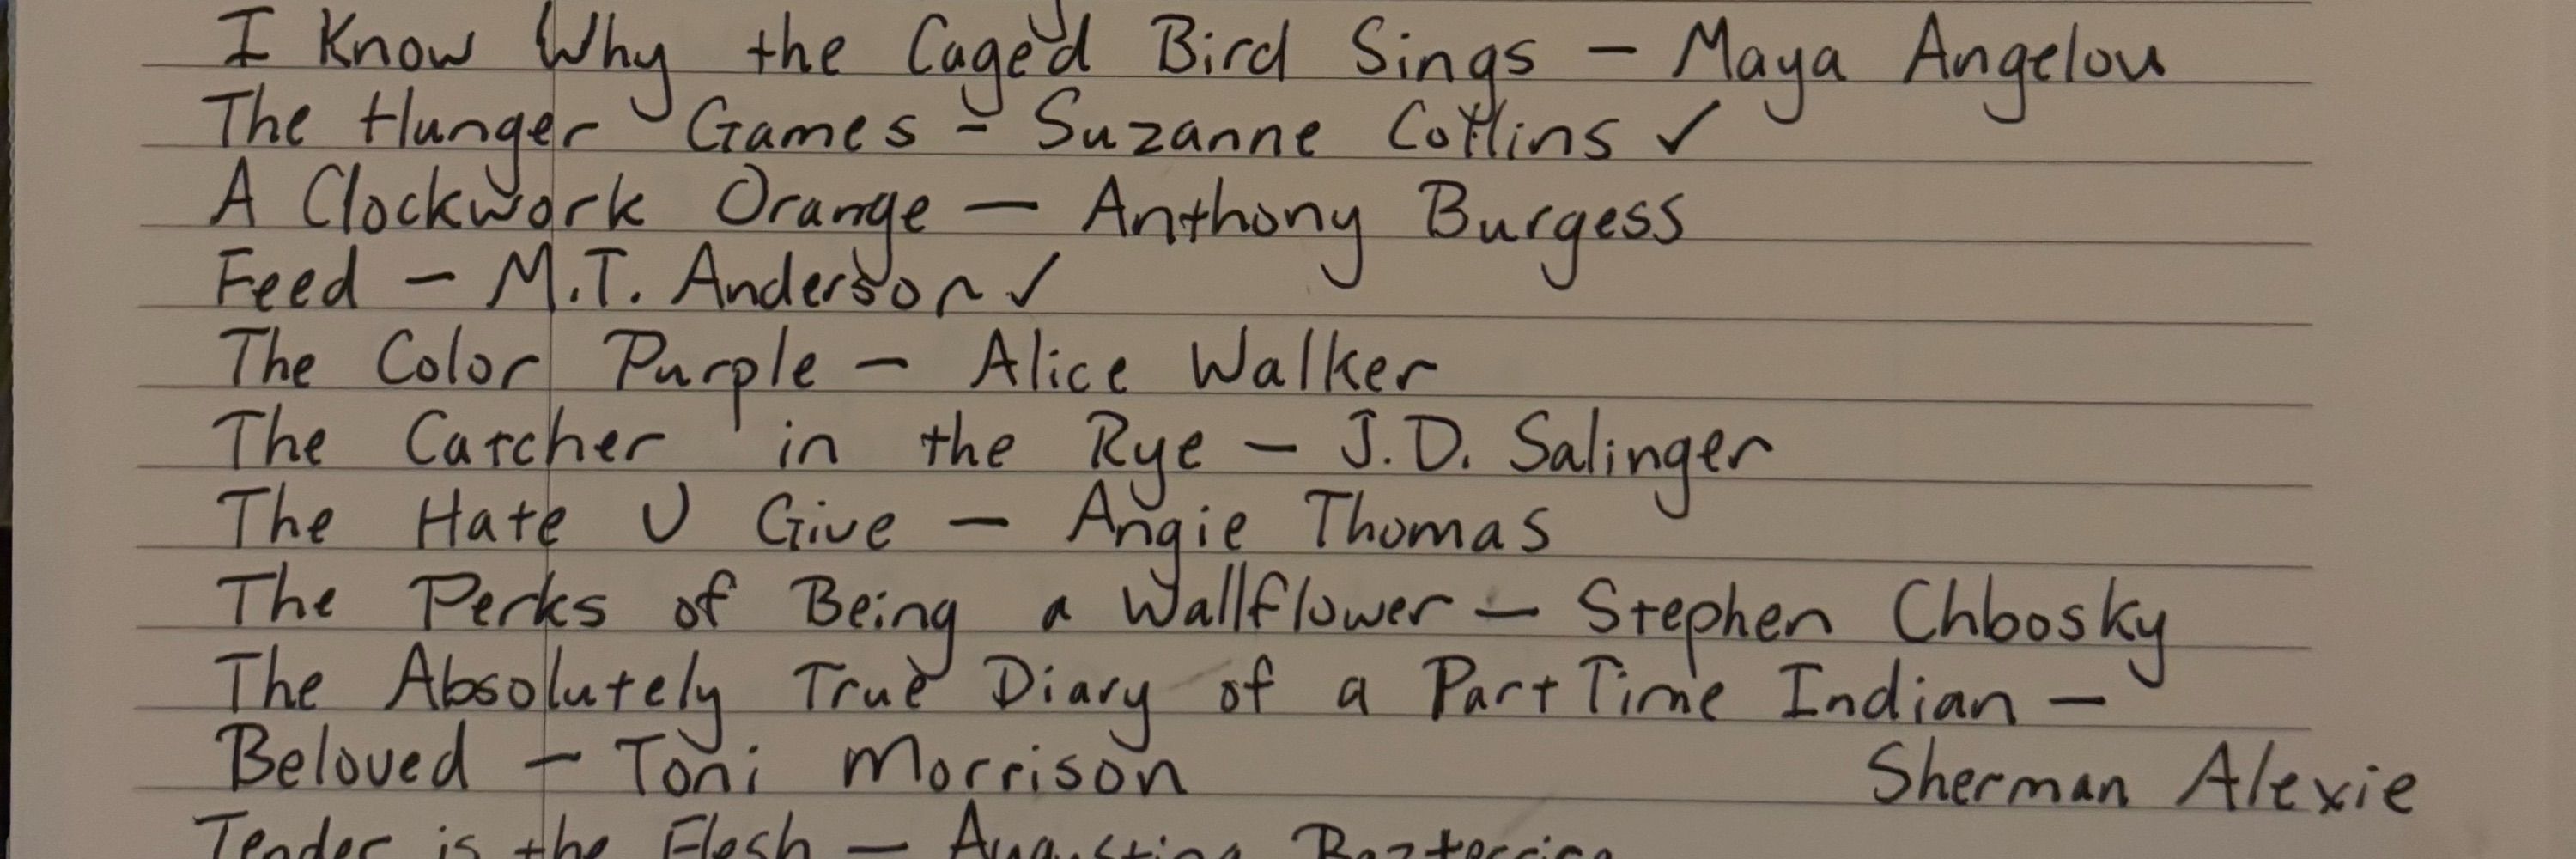 I Know Why the Caged Bird Sings – Maya Angelou
The Hunger Games – Suzanne Collins ✓
A Clockwork Orange – Anthony Burgess
Feed – M.T. Anderson ✓
The Color Purple – Alice Walker
The Catcher in the Rye – J.D. Salinger
The Hate U Give – Angie Thomas
The Perks of Being a Wallflower – Stephen Chbosky
The Absolutely True Diary of a Part Time Indian –
Sherman Alexie
Beloved – Toni Morrison
Tender is the Flesh – Augustina Bazterrica